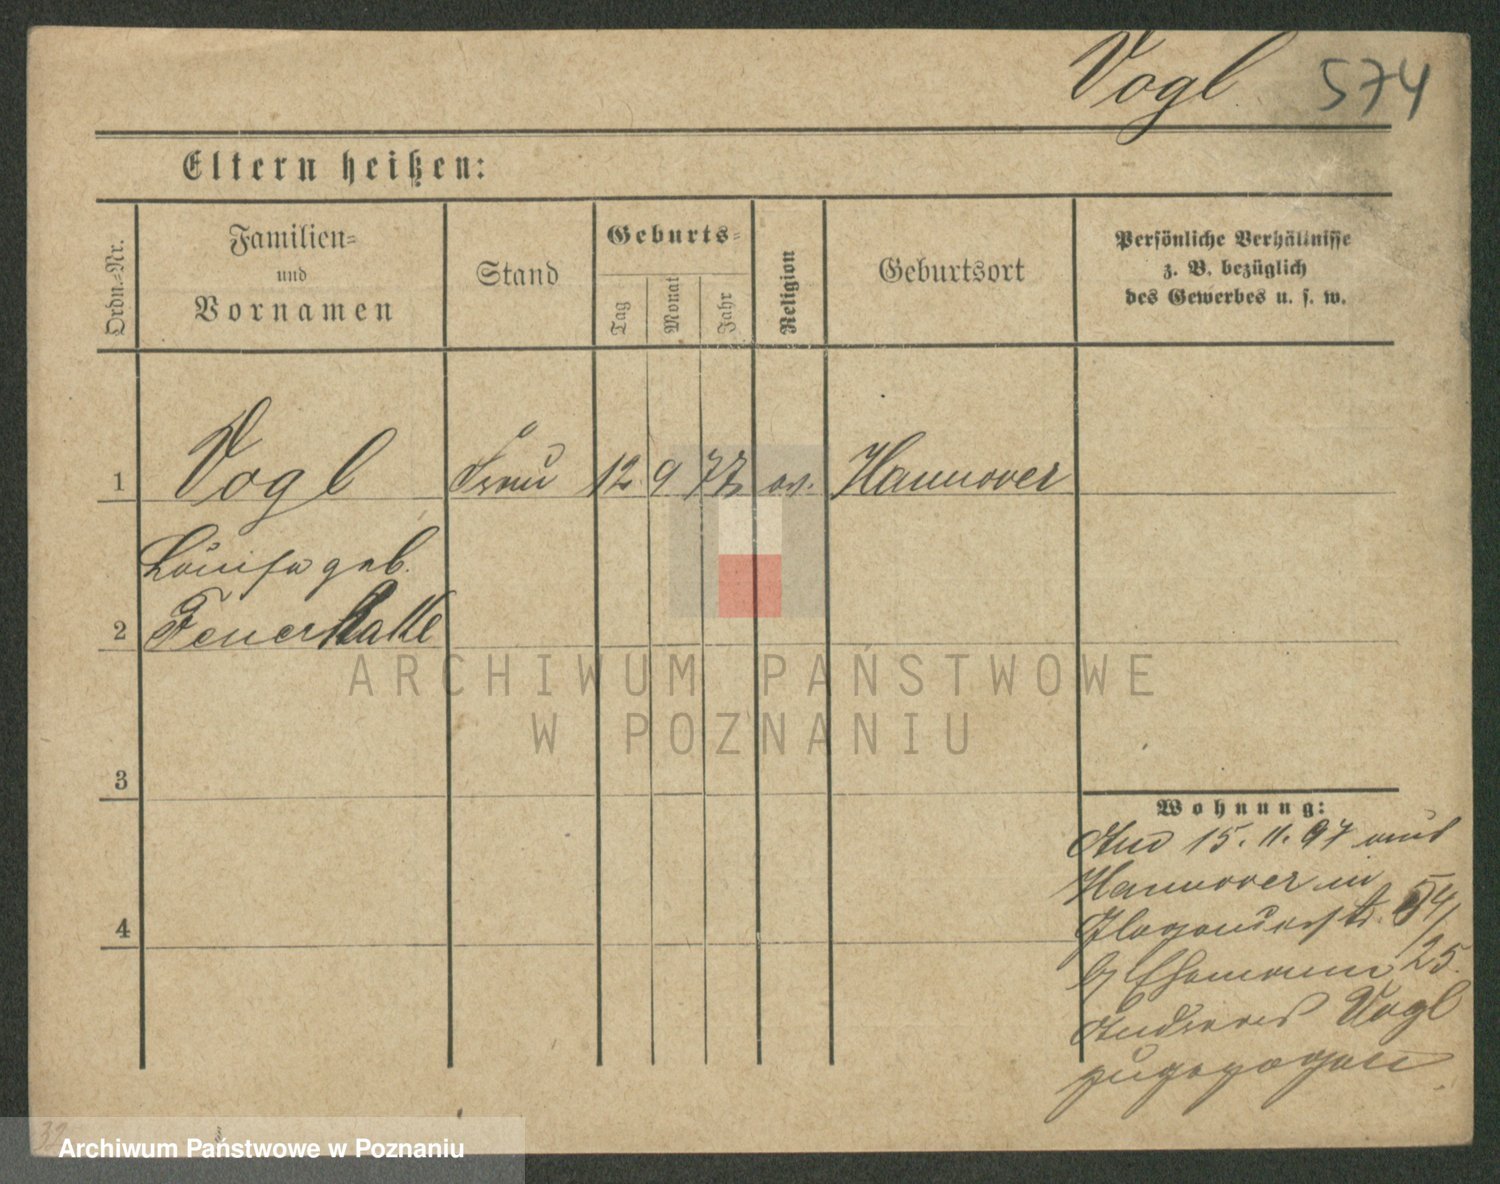 Vogl 574
Eltern heißen:
Ordn.-Nr.
Familien-
und
Vornamen
Stand
Geburts-
Tag
Monat
Jahr
Religion
Geburtsort
Persönliche Verhältnisse
z. B. bezüglich
des Gewerbes u. s. w.
1 Vogl Frau 12 9 77 ev. Hannover
Louise geb.
2 Feuerhake
3
4
Wohnung:
15. 11. 97 aus
Hannover in
54/
b/ Ehemann 25.
Andreas Vogl
zugezogen
ARCHIWUM PAŃSTWOWE
W POZNANIU
32
Archiwum Państwowe w Poznaniu